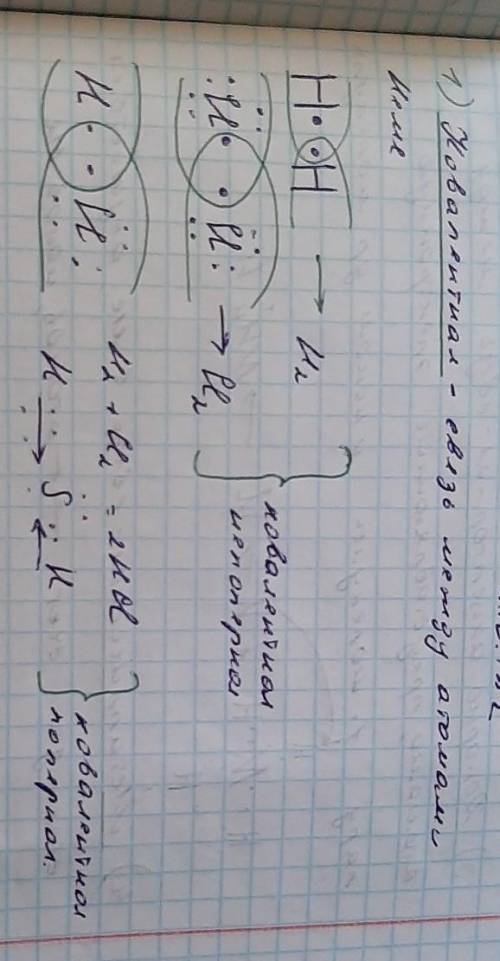 1) Ковалентная - связь между атомами
НеМе
H· ·H → H₂
:Cl· ·Cl: → Cl₂
ковалентная
неполярная
H· ·Cl:
H₂ + Cl₂ = 2HCl
H → S ← H
ковалентная
полярная.